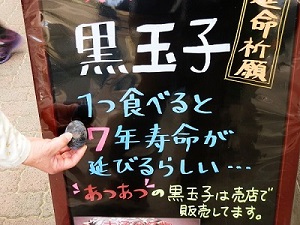 延命祈願
黒玉子
1つ食べると
7年寿命が
延びるらしい…
"あつあつ"の黒玉子は売店で
販売してます。